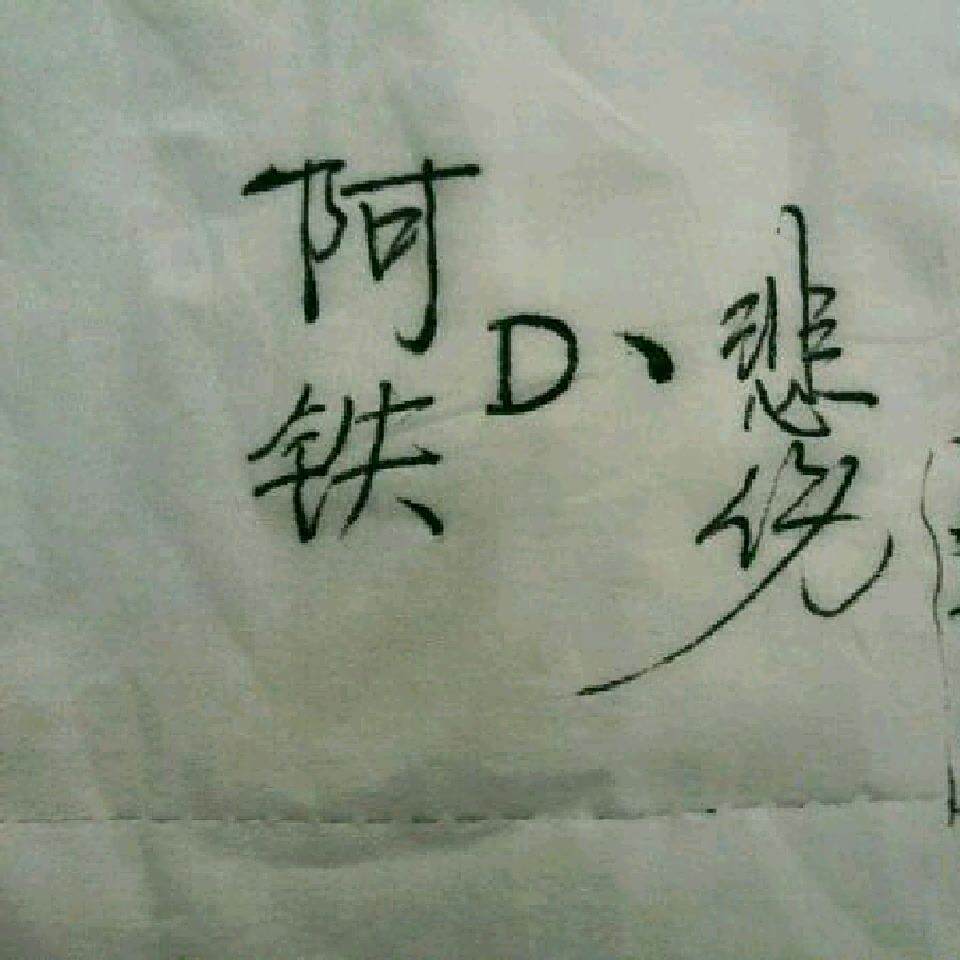 阿铁
D、
悲